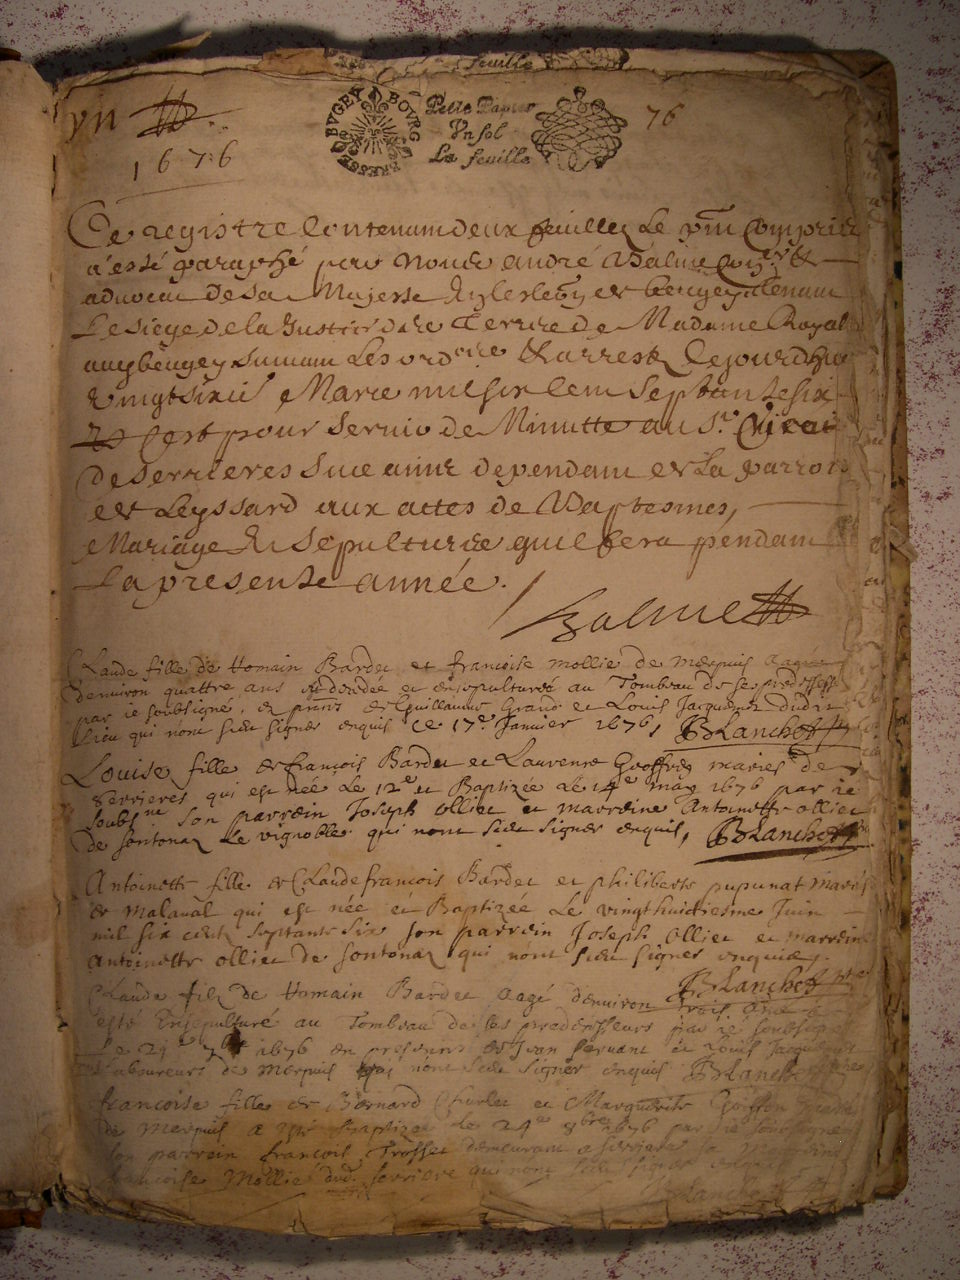 feuille
BRESSE BVGEY BOVRG
Petit Papier
Vn sol
La feuille
76
yn
1676
Ce registre contenant deux feuilles le pnt Compris
a esté paraphé par Nous andré
aduocat de sa Majesté
Le siege de la Justice de la Terre de Madame Royalle
au bugey suiuant Les ordces & arrests cejourdhuy
vingtsixie Mars mil six cent septante six
Cest pour seruir de Minutte au Sr Curat
de Serrieres Suc annexe dependant et La parroisse
et Leyssard aux actes de Baptesmes,
Mariages & Sepultures quil fera pendant
La presente année.
Balme
Claude fille de Homain Bardet et françoise mollie de merpuis aagée
denviron quattre ans et ensepulturée au Tombeau de ses predecesseurs
par ie soubsigné, en pnce de Guillaume Grand et Louis Jacquemet dudit
Lieu qui nont sceu signer enquis ce 17e Januier 1676, Blanchet
Louise fille de françois Bardet et Laurence Goiffon mariés de
Serrieres qui est née Le 12e et Baptizée Le 14e may 1676 par ie
soubsne son parrein Joseph Olliet et marreine Antoinette olliet
de sontonax Le vignoble qui nont sceu signer enquis, Blanchet
Antoinette fille de Claude françois Bardet et philiberte pupunat mariés
de Malaual qui est née et Baptizée Le vingthuictiesme Juin
mil six cents septante six son parrein Joseph Olliet et marreine
Antoinette olliet de sontonax qui nont sceu signer enquis.
Blanchet ptre
Claude filz de Homain Bardet aagé denviron trois ans a
esté Ensepulturé au Tombeau de ses predecesseurs par ie soubsigné
Le 21e 1676 en presences de Jean seruant et Louis Jacquemet
Laboureurs de merpuis qui nont sceu signer enquis Blanchet ptre
françoise fille de Bernard Churlet et Marguerite Goiffon mariés
de Merpuis a esté Baptizée Le 24e 8bre 1676 par ie soubsigné
son parrein françois Trosset demeurant a serriere sa marreine
françoise Mollie dud. serriere qui nont sceu signer enquis
Blanchet